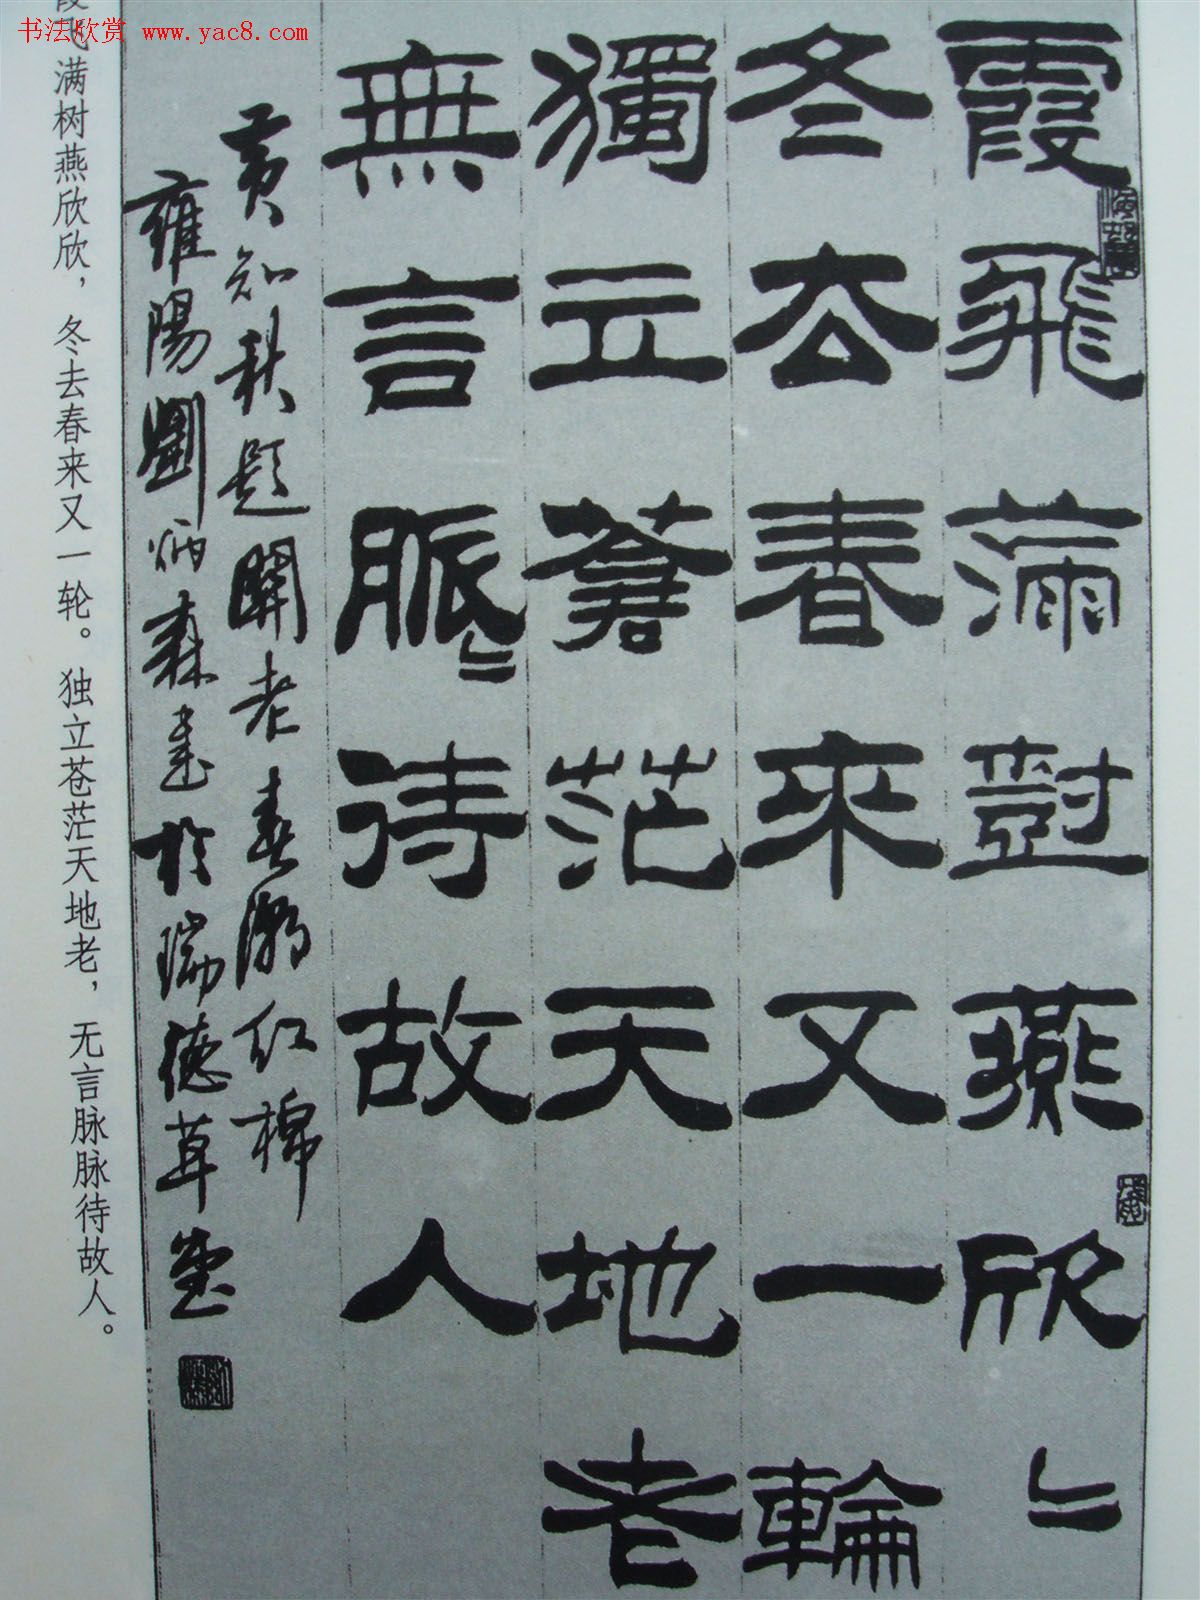 书法欣赏 www.yac8.com
霞飛滿樹燕欣〻
冬去春來又一輪
獨立蒼茫天地老
無言脈〻待故人
黃知秋題關老春潮紅棉
雍陽劉炳森書於瑞德草堂
霞飞满树燕欣欣，冬去春来又一轮。独立苍茫天地老，无言脉脉待故人。